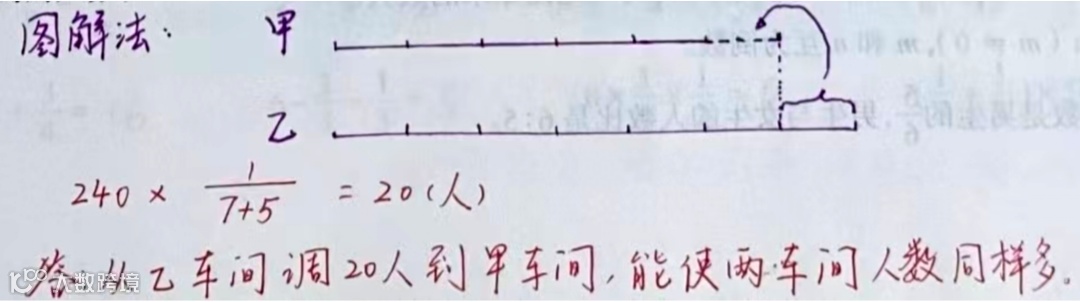 图解法: 甲
乙
240 × 1/(7+5) = 20(人)
答:从乙车间调20人到甲车间,能使两车间人数同样多。
大数跨境